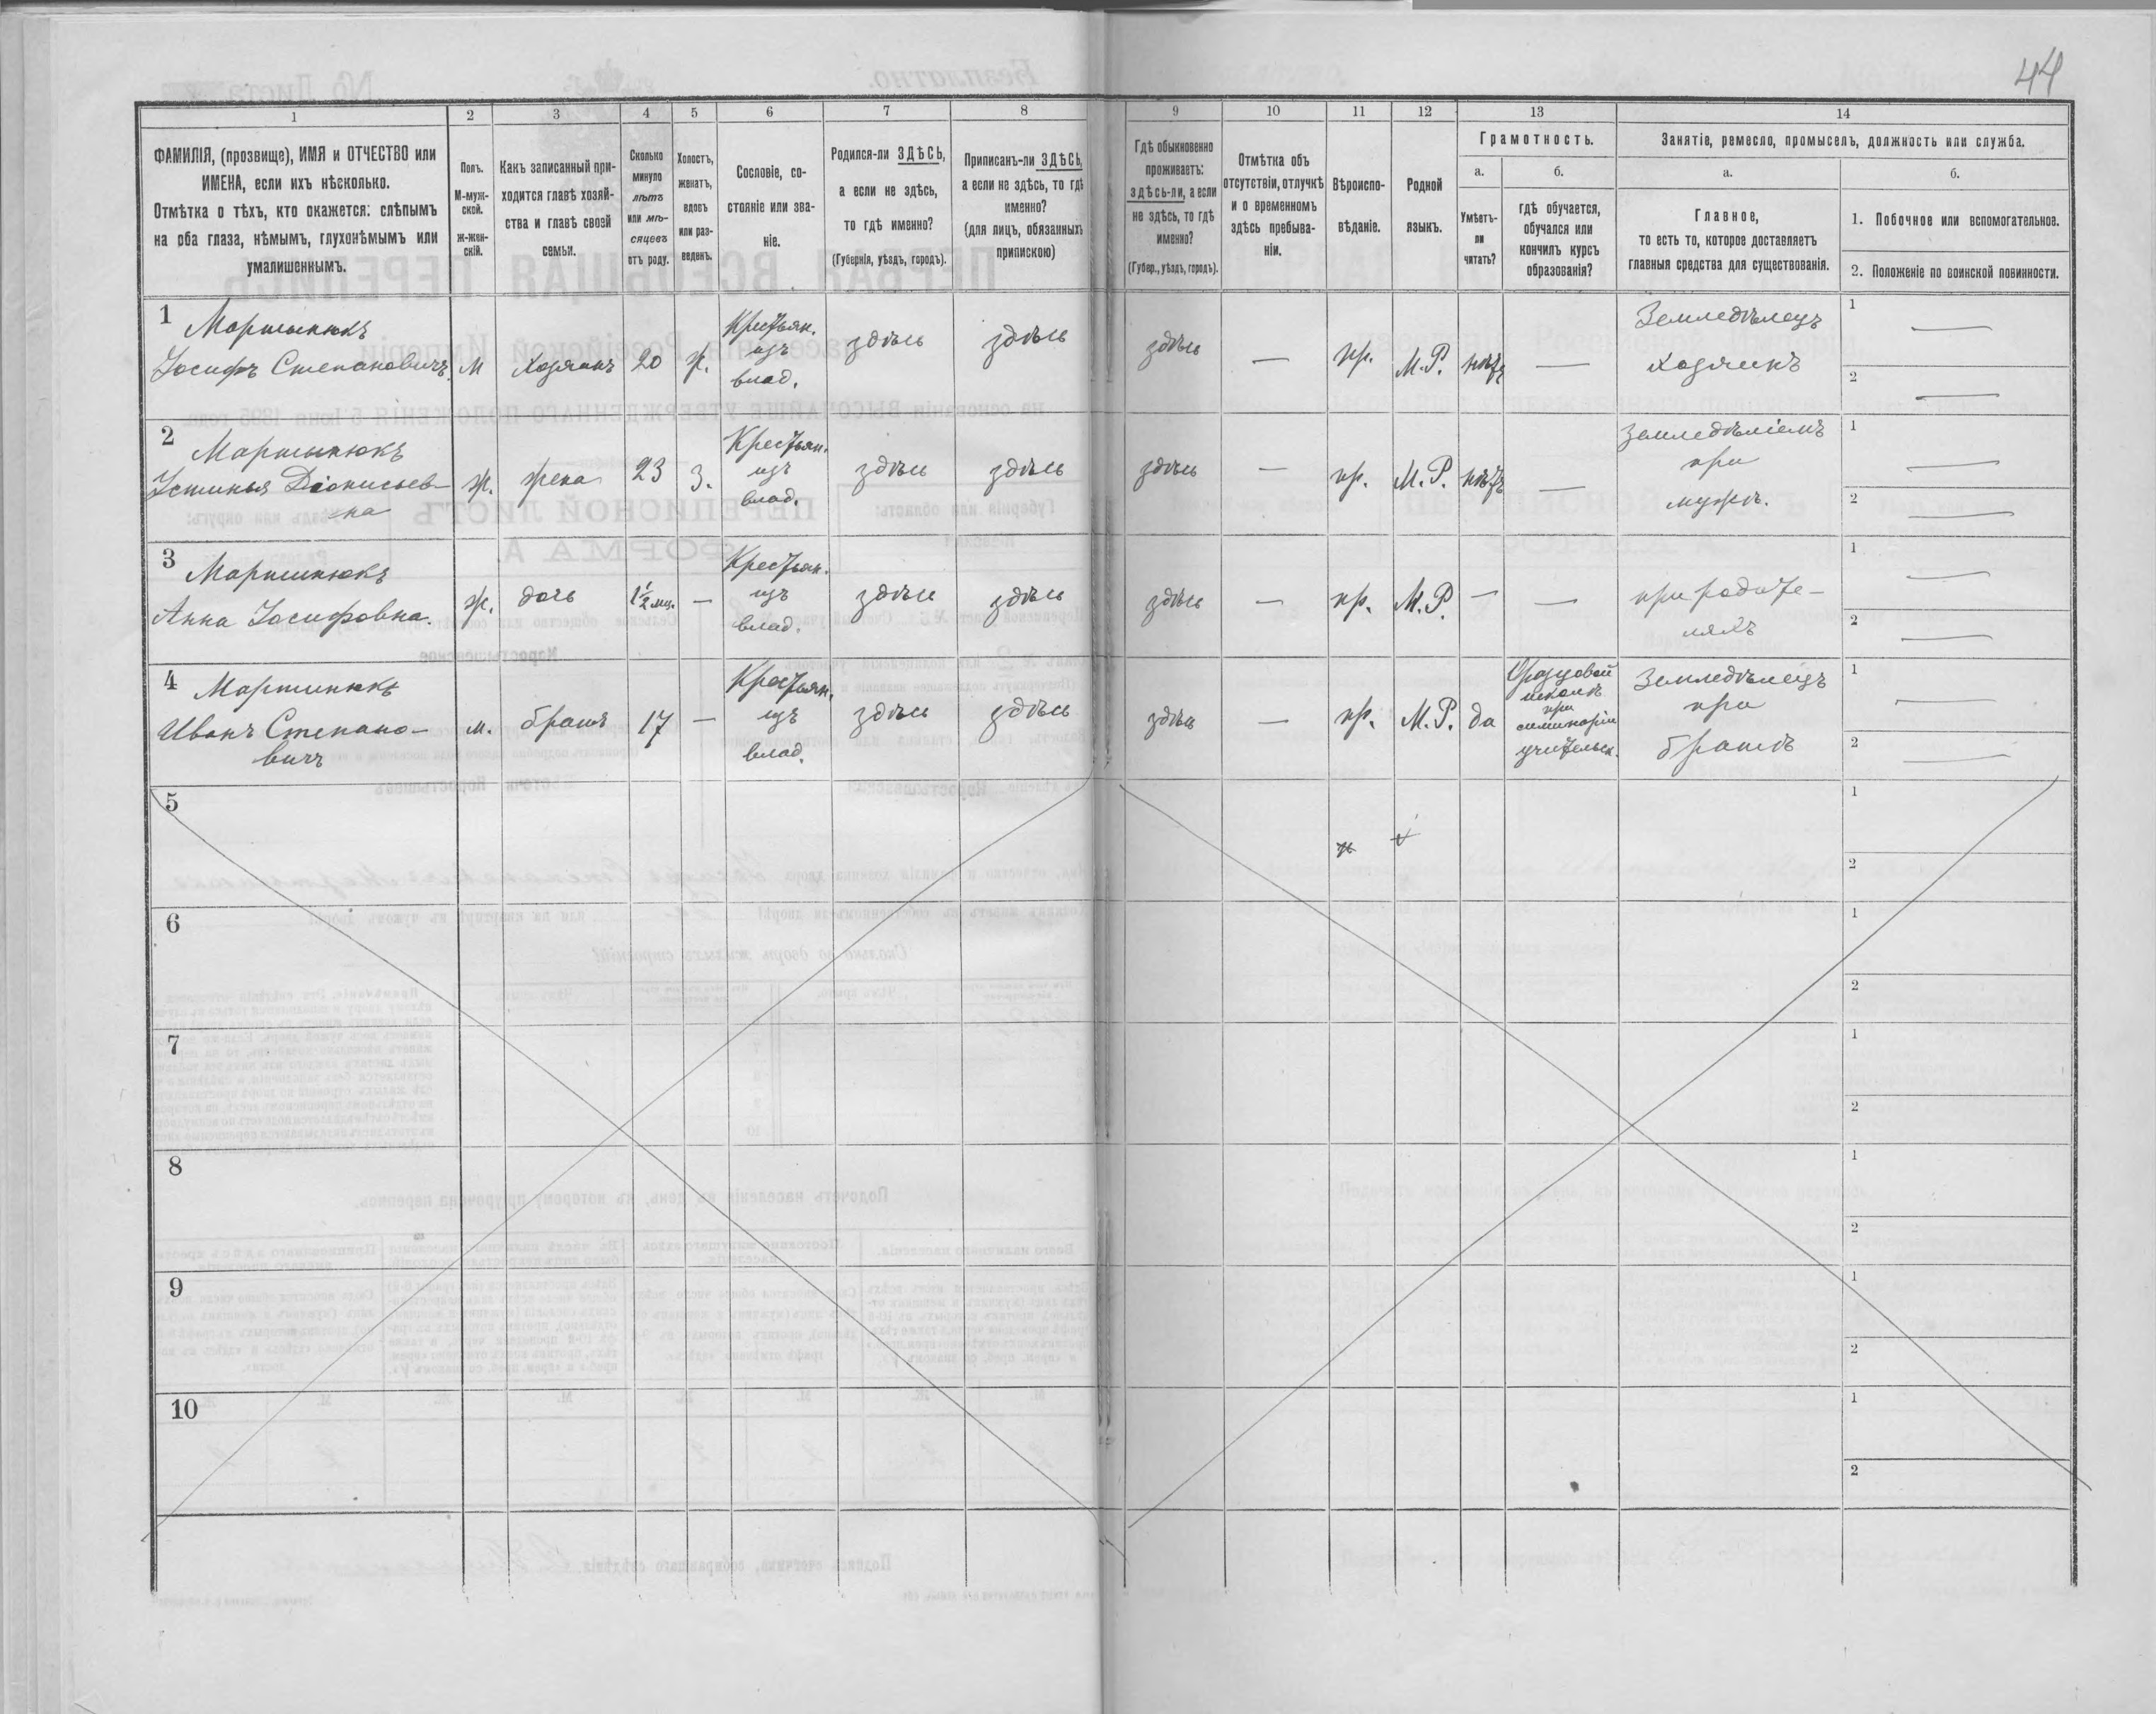 44
1 2 3 4 5 6 7 8 9 10 11 12 13 14
ФАМИЛІЯ, (прозвище), ИМЯ и ОТЧЕСТВО или
ИМЕНА, если ихъ нѣсколько.
Отмѣтка о тѣхъ, кто окажется: слѣпымъ
на оба глаза, нѣмымъ, глухонѣмымъ или
умалишеннымъ.
Полъ.
М-муж-
ской.
ж-жен-
скій.
Какъ записанный при-
ходится главѣ хозяй-
ства и главѣ своей
семьи.
Сколько
минуло
лѣтъ
или мѣ-
сяцевъ
отъ роду.
Холостъ,
женатъ,
вдовъ
или раз-
веденъ.
Сословіе, со-
стояніе или зва-
ніе.
Родился-ли ЗДѢСЬ,
а если не здѣсь,
то гдѣ именно?
(Губернія, уѣздъ, городъ).
Приписанъ-ли ЗДѢСЬ,
а если не здѣсь, то гдѣ
именно?
(для лицъ, обязанныхъ
припискою)
Гдѣ обыкновенно
проживаетъ:
здѣсь-ли, а если
не здѣсь, то гдѣ
именно?
(Губер., уѣздъ, городъ).
Отмѣтка объ
отсутствіи, отлучкѣ
и о временномъ
здѣсь пребыва-
ніи.
Вѣроиспо-
вѣданіе.
Родной
языкъ.
Грамотность.
а.
Умѣетъ-
ли
читать?
б.
гдѣ обучается,
обучался или
кончилъ курсъ
образованія?
Занятіе, ремесло, промыселъ, должность или служба.
а.
Главное,
то есть то, которое доставляетъ
главныя средства для существованія.
б.
1. Побочное или вспомогательное.
2. Положеніе по воинской повинности.
1
Мартынюкъ
Іосифъ Степановичъ.
м
хозяинъ
20
ж.
Крестьян.
изъ
влад.
здѣсь
здѣсь
здѣсь
—
пр.
М.Р.
нѣтъ
—
Земледѣлецъ
хозяинъ
1 —
2 —
2
Мартынюкъ
Устинья Діонисьев-
на
ж.
жена
23
з.
Крестьян.
изъ
влад.
здѣсь
здѣсь
здѣсь
—
пр.
М.Р.
нѣтъ
—
Земледѣліемъ
при
мужѣ.
1 —
2 —
3
Мартинюкъ
Анна Іосифовна.
ж.
дочь
1½ мц.
—
Крестьян.
изъ
влад.
здѣсь
здѣсь
здѣсь
—
пр.
М.Р.
—
—
при родите-
ляхъ
1 —
2 —
4
Мартинюкъ
Иванъ Степано-
вичъ
м.
братъ
17
—
Крестьян.
изъ
влад.
здѣсь
здѣсь
здѣсь
—
пр.
М.Р.
да
школѣ
при
семинаріи
учительск.
Земледѣлецъ
при
братѣ
1 —
2 —
5
1
2
6
1
2
7
1
2
8
1
2
9
1
2
10
1
2